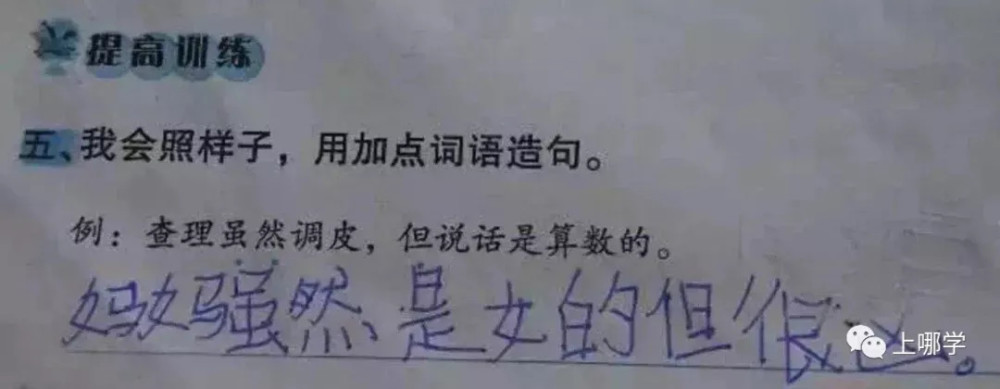 提高训练
五、我会照样子，用加点词语造句。
例：查理虽然调皮，但说话是算数的。
妈妈虽然是女的但很凶。
上哪学